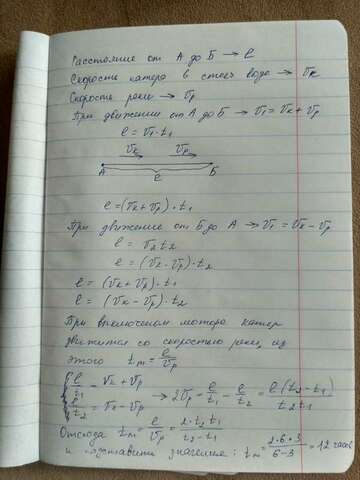 Расстояние от А до Б → ℓ
Скорость катера в стояч воде → Vк
Скорость реки → Vр
При движении от А до Б → V₁ = Vк + Vр
ℓ = V₁ · t₁
Vк Vр
А ℓ Б
ℓ = (Vк + Vр) · t₁
При движение от Б до А → V₁ = Vк - Vр
ℓ = V₂ t₂
ℓ = (Vк - Vр) · t₂
ℓ = (Vк + Vр) · t₁
ℓ = (Vк - Vр) · t₂
При выключеном моторе катер
движится со скоростью реки, из
этого tm = ℓ/Vр
{ ℓ/t₁ = Vк + Vр
ℓ/t₂ = Vк - Vр → 2Vр = ℓ/t₁ - ℓ/t₂ = ℓ(t₂ - t₁)/t₂t₁
Отсюда tm = ℓ/Vр = 2 · t₂ t₁/t₂ - t₁
и подставить значение: tm = 2·6·3/6-3 = 12 часов